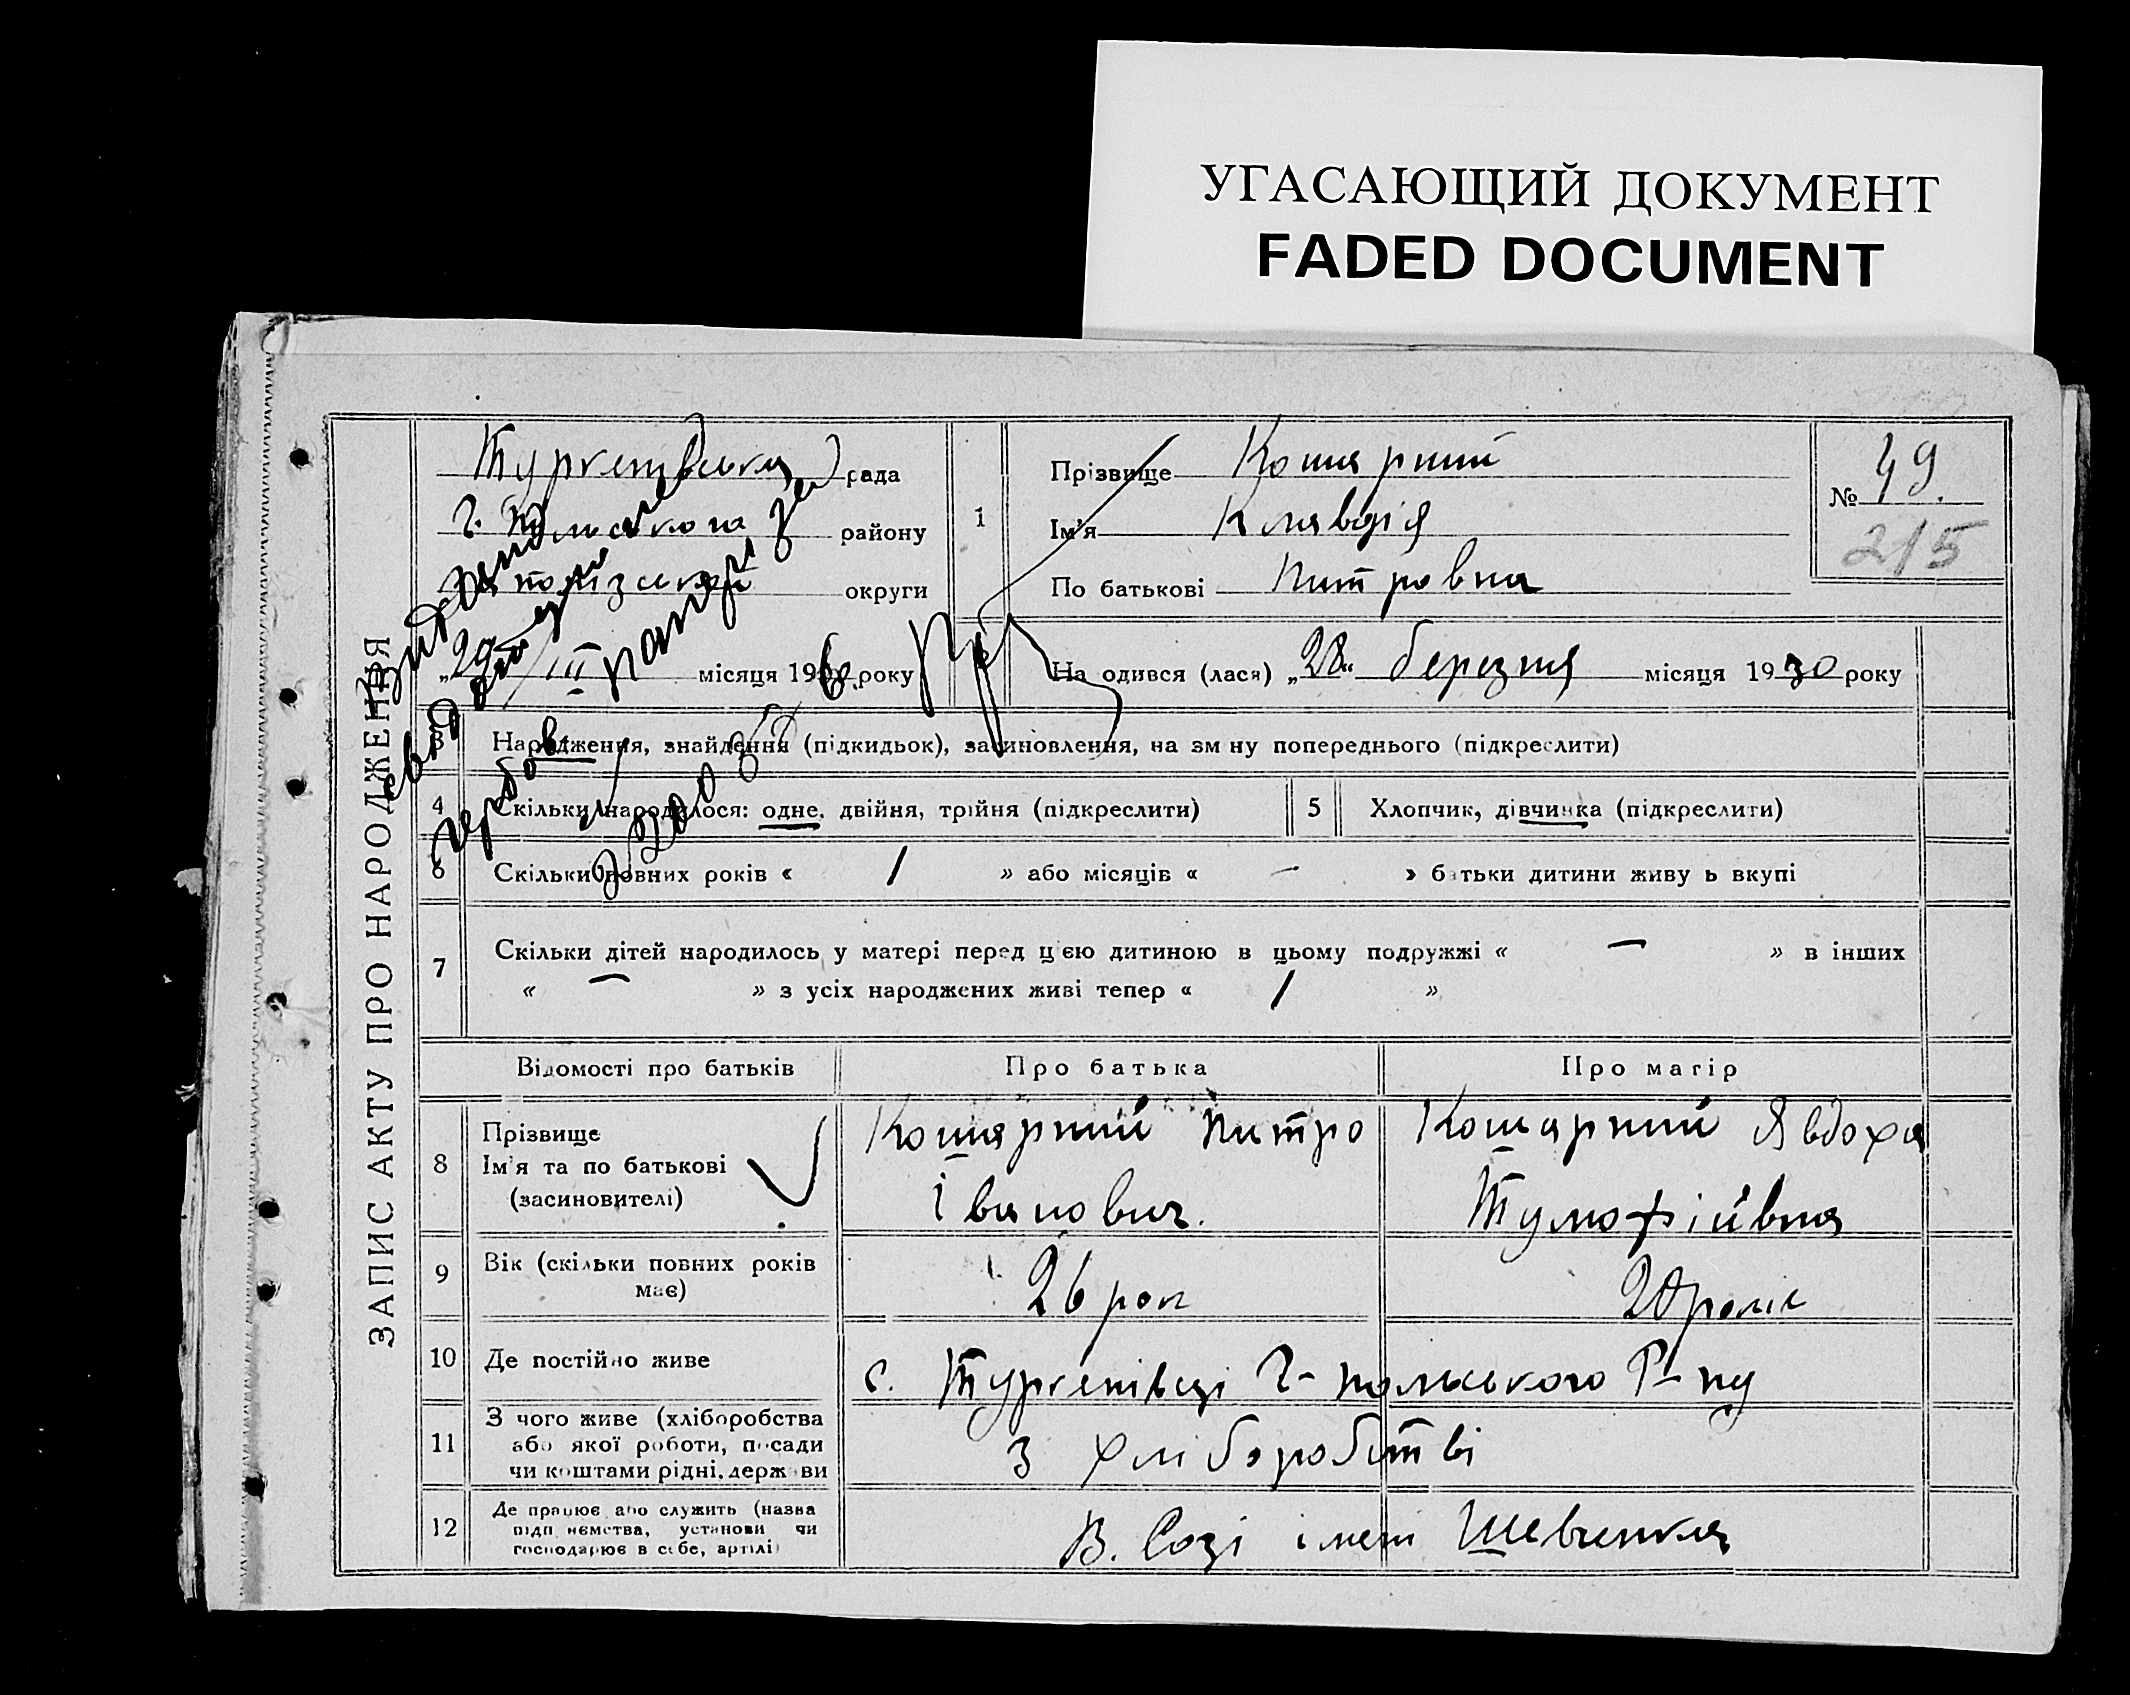 УГАСАЮЩИЙ ДОКУМЕНТ
FADED DOCUMENT
ЗАПИС АКТУ ПРО НАРОДЖЕННЯ
Туркенівська рада
району
округи
29/III місяця 19 року
1
Прізвище Кошарний
Ім'я Клавдія
По батькові Питровна
№ 49.
215
На одився (лася) „28" березня місяця 1930 року
3 Народження, знайдення (підкидьок), засиновлення, на зм ну попереднього (підкреслити)
4 Скільки народилося: одне, двійня, трійня (підкреслити)
5 Хлопчик, дівчинка (підкреслити)
6 Скільки повних років « 1 » або місяців « — » батьки дитини живу ь вкупі
7 Скільки дітей народилось у матері перед цією дитиною в цьому подружжі « — » в інших
« — » з усіх народжених живі тепер « 1 »
Відомості про батьків Про батька Про матір
8 Прізвище
Ім'я та по батькові
(засиновителі)
Кошарний Питро
Іванович.
Кошарний Явдоха
Тумофіївна
9 Вік (скільки повних років
має)
26 рок
20 років
10 Де постійно живе
с. Туркенівці Г-польського Р-ну
11 З чого живе (хліборобства
або якої роботи, посади
чи коштами рідні, держави
З хліборобстві
12 Де працює або служить (назва
підп иємства, установи чи
господарює в себе, артілі)
В. Созі імени Шевченка